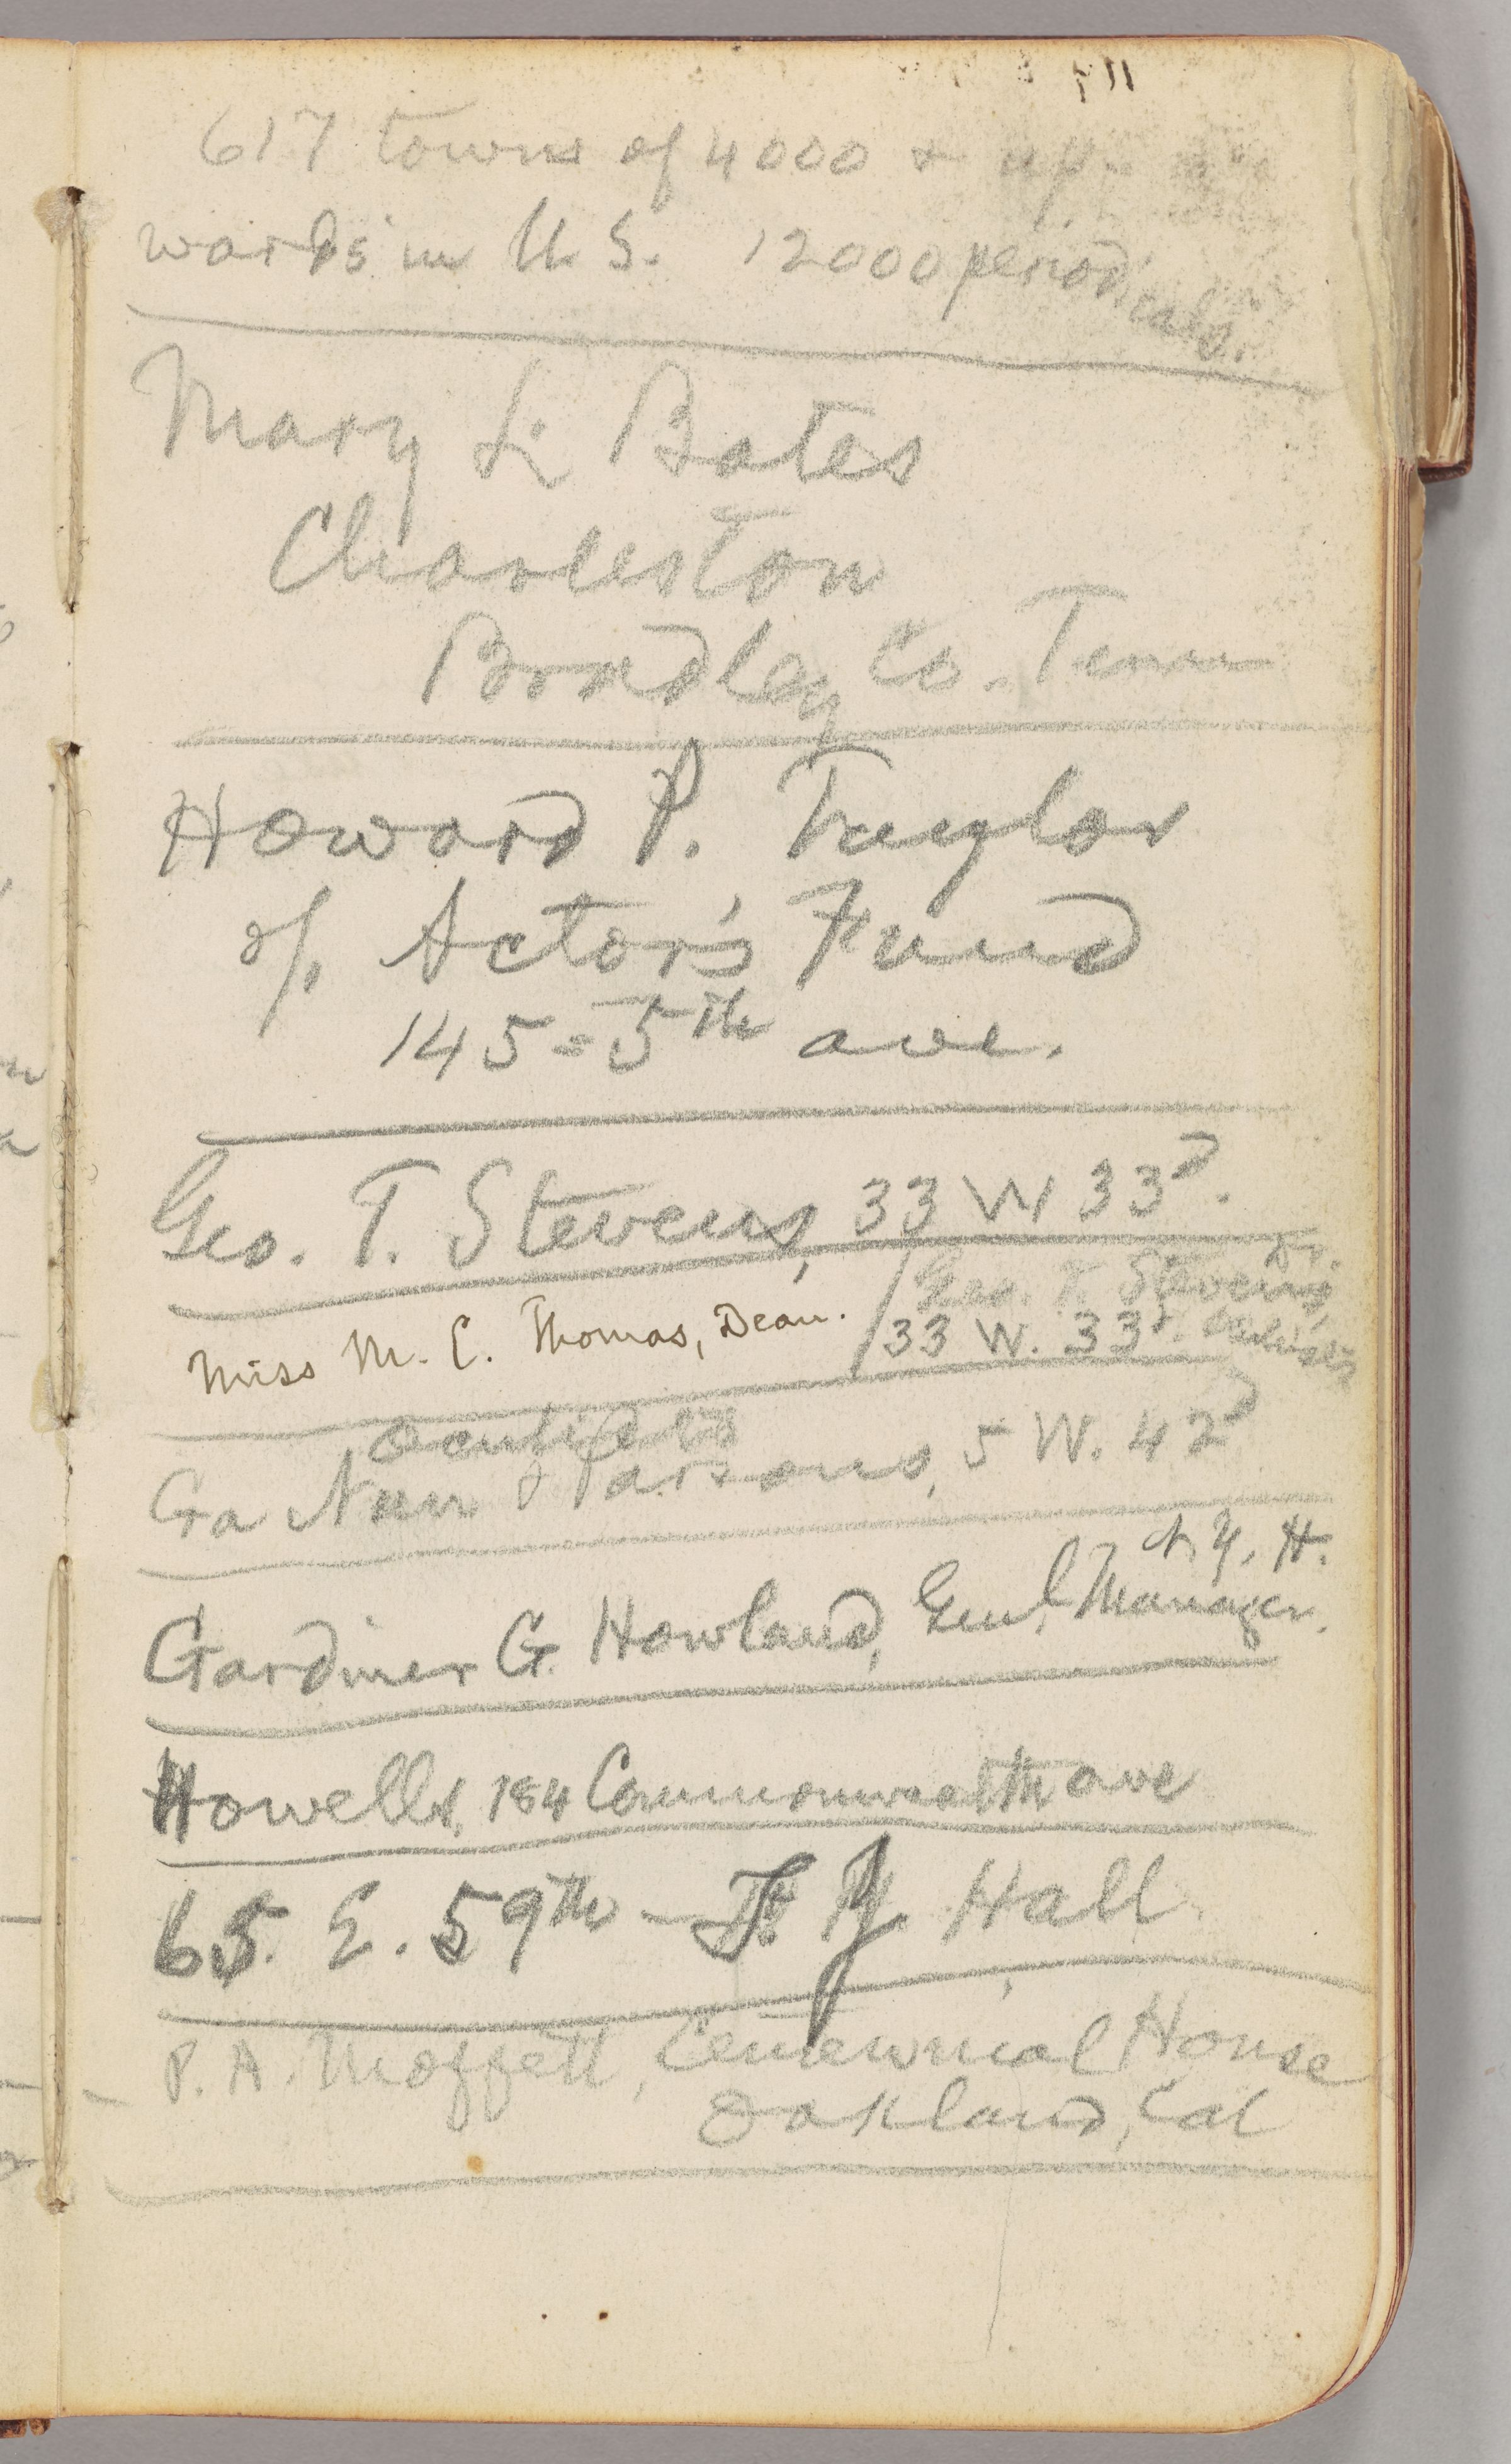 617 towns of 4000 & up-
wards in U. S. 12000 periodicals.
Mary L. Bates
Charleston
Bradley Co. Tenn
Howard P. Taylor
of Actor's Fund
145 = 5th ave.
Geo. T. Stevens, 33 W 33d.
Miss M. C. Thomas, Dean.
Dr.
Geo. T. Stevens,
33 W. 33d. Oculist
Oculists
Parsons, 5 W. 42d
N. Y. H.
Gardiner G. Howland, Genl Manager.
Howells, 184 Commonwealth ave
65. E. 59th — Hall
P. A. Moffett, Centennial House
Oakland, Cal